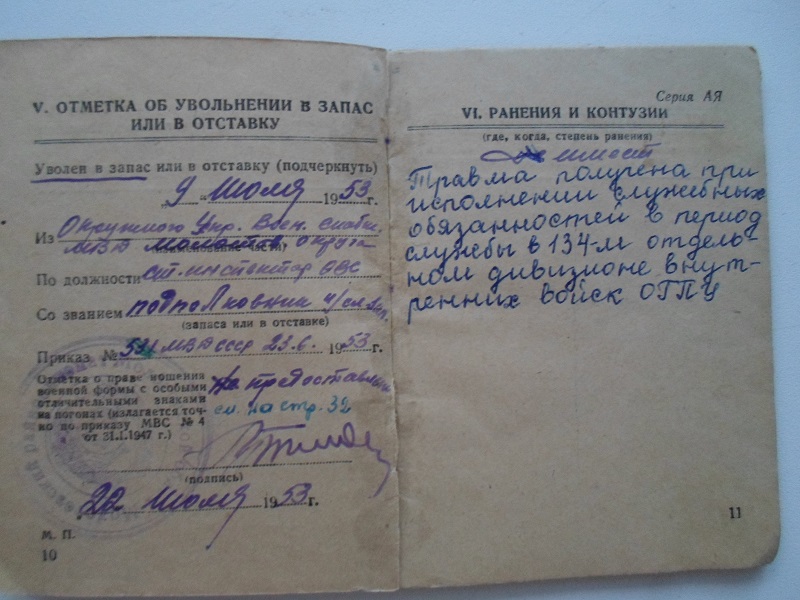 V. ОТМЕТКА ОБ УВОЛЬНЕНИИ В ЗАПАС
ИЛИ В ОТСТАВКУ
Уволен в запас или в отставку (подчеркнуть)
9 „ Июля 1953 г.
Из Окружного Упр. Воен. Снабж.
МВД округа
По должности ст. инспектор
Со званием подполковник
(запаса или в отставке)
Приказ № МВД СССР 23.6. 1953 г.
Отметка о праве ношения
военной формы с особыми
отличительными знаками
на погонах (излагается точ-
но по приказу МВС № 4
от 31.I.1947 г.)
см. на стр. 32
(подпись)
20 Июля 1953 г.
М. П.
10
Серия АЯ
VI. РАНЕНИЯ И КОНТУЗИИ
(где, когда, степень ранения)
Травма получена при
исполнении служебных
обязанностей в период
службы в 134-м отдель-
ном дивизионе внут-
ренних войск ОГПУ
11